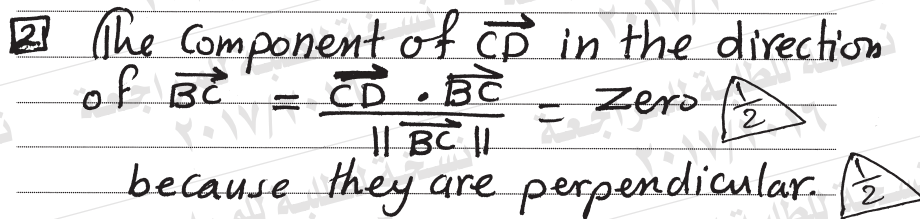 2 The component of CD in the direction
of BC = CD . BC / || BC || = Zero 1/2
because they are perpendicular. 1/2